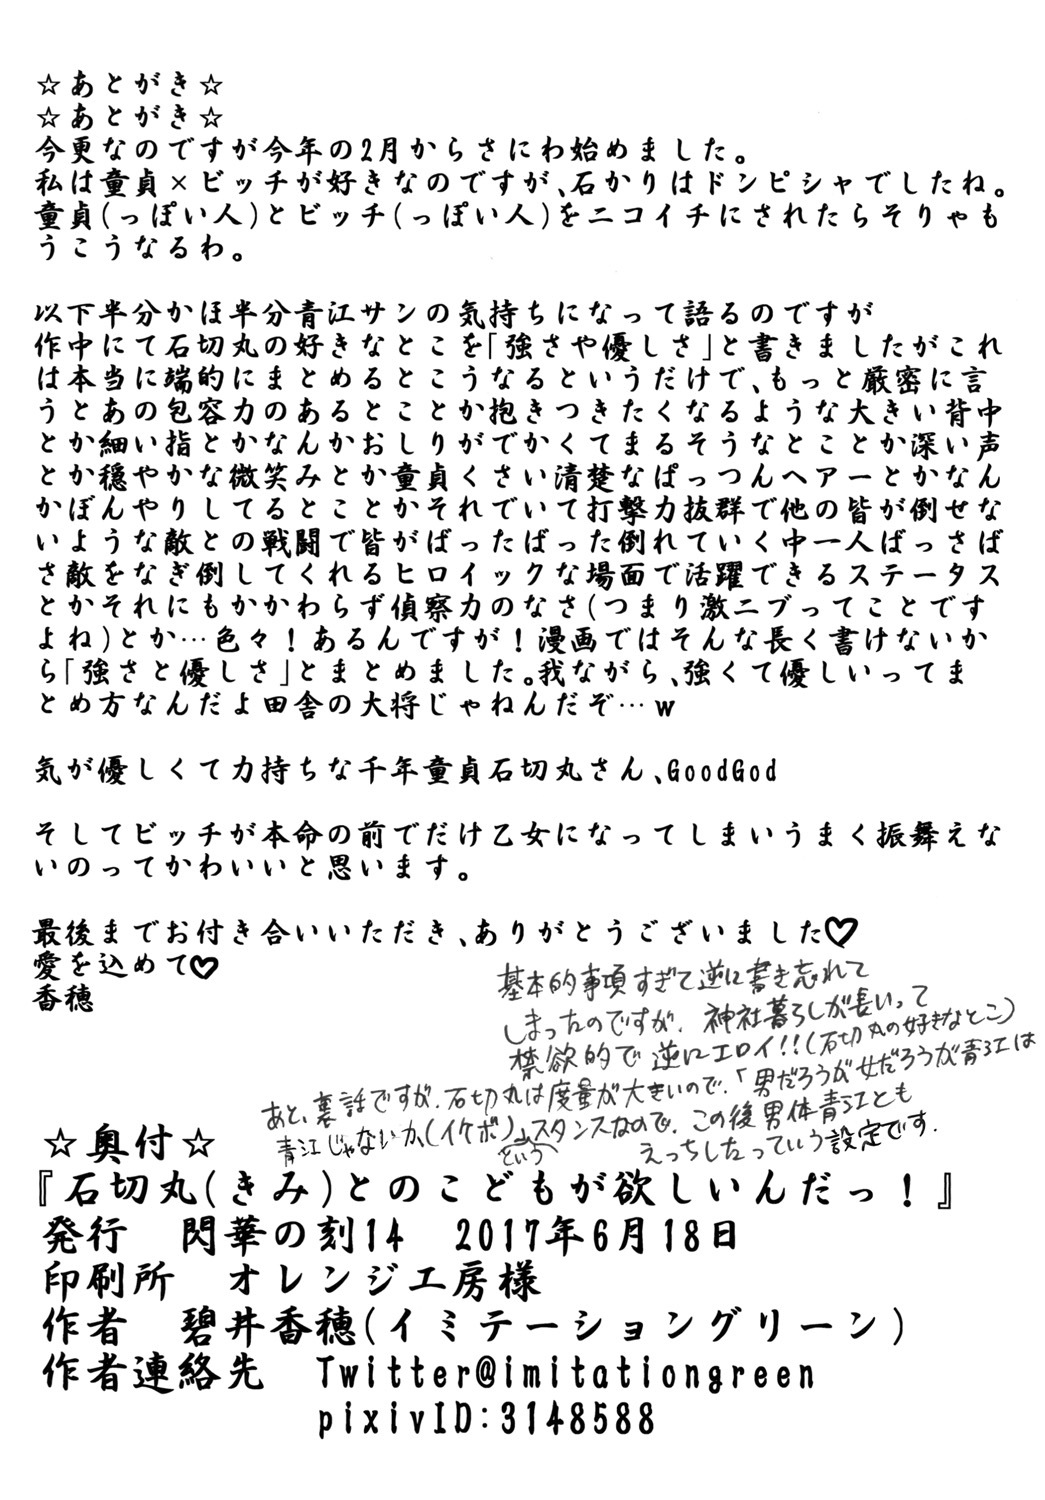 ☆あとがき☆
☆あとがき☆
今更なのですが今年の2月からさにわ始めました。
私は童貞×ビッチが好きなのですが、石かりはドンピシャでしたね。
童貞(っぽい人)とビッチ(っぽい人)をニコイチにされたらそりゃも
うこうなるわ。
以下半分かほ半分青江サンの気持ちになって語るのですが
作中にて石切丸の好きなとこを「強さや優しさ」と書きましたがこれ
は本当に端的にまとめるとこうなるというだけで、もっと厳密に言
うとあの包容力のあるとことか抱きつきたくなるような大きい背中
とか細い指とかなんかおしりがでかくてまるそうなとことか深い声
とか穏やかな微笑みとか童貞くさい清楚なぱっつんヘアーとかなん
かぼんやりしてるとことかそれでいて打撃力抜群で他の皆が倒せな
いような敵との戦闘で皆がばったばった倒れていく中一人ばっさば
さ敵をなぎ倒してくれるヒロイックな場面で活躍できるステータス
とかそれにもかかわらず偵察力のなさ(つまり激ニブってことです
よね)とか…色々！あるんですが！漫画ではそんな長く書けないか
ら「強さと優しさ」とまとめました。我ながら、強くて優しいってま
とめ方なんだよ田舎の大将じゃねんだぞ…w
気が優しくて力持ちな千年童貞石切丸さん、GoodGod
そしてビッチが本命の前でだけ乙女になってしまいうまく振舞えな
いのってかわいいと思います。
最後までお付き合いいただき、ありがとうございました♡
愛を込めて♡
香穂
基本的事項すぎて逆に書き忘れて
しまったのですが、神社暮らしが長いって
禁欲的で逆にエロイ!!(石切丸の好きなとこ)
あと、裏話ですが、石切丸は度量が大きいので、「男だろうが女だろうが青江は
青江じゃないか(イケボ)」というスタンスなので、この後男体青江とも
えっちしたっていう設定です.
☆奥付☆
『石切丸(きみ)とのこどもが欲しいんだっ！』
発行　閃華の刻14　2017年6月18日
印刷所　オレンジ工房様
作者　碧井香穂(イミテーショングリーン)
作者連絡先　Twitter@imitationgreen
pixivID:3148588